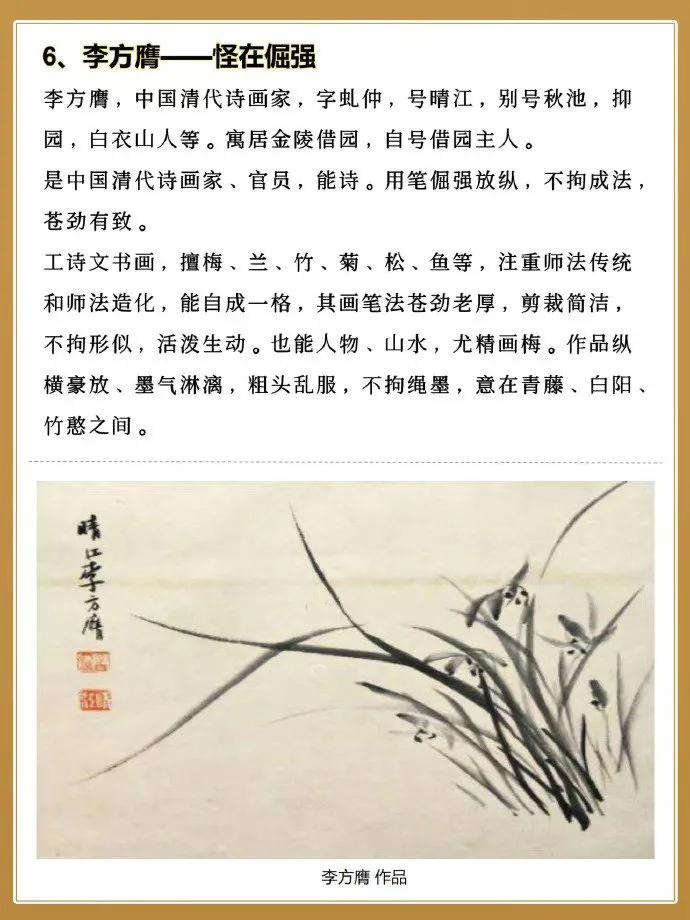 6、李方膺——怪在倔强
李方膺，中国清代诗画家，字虬仲，号晴江，别号秋池，抑
园，白衣山人等。寓居金陵借园，自号借园主人。
是中国清代诗画家、官员，能诗。用笔倔强放纵，不拘成法，
苍劲有致。
工诗文书画，擅梅、兰、竹、菊、松、鱼等，注重师法传统
和师法造化，能自成一格，其画笔法苍劲老厚，剪裁简洁，
不拘形似，活泼生动。也能人物、山水，尤精画梅。作品纵
横豪放、墨气淋漓，粗头乱服，不拘绳墨，意在青藤、白阳、
竹憨之间。
晴江李方膺
李方膺 作品